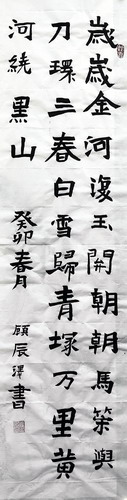 歲歲金河復玉關朝朝馬策與
刀環三春白雪歸青塚万里黄
河繞黑山
癸卯春月
顧辰澤書